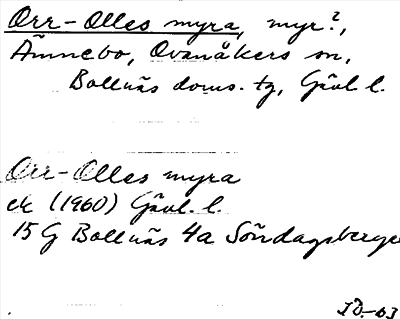 Orr-Olles myra, myr?,
Ämnebo, Ovanåkers sn,
Bollnäs doms. tg, Gävl. l.
Orr-Olles myra
ek (1960) Gävl. l.
15 G Bollnäs 4a Söndagsberget